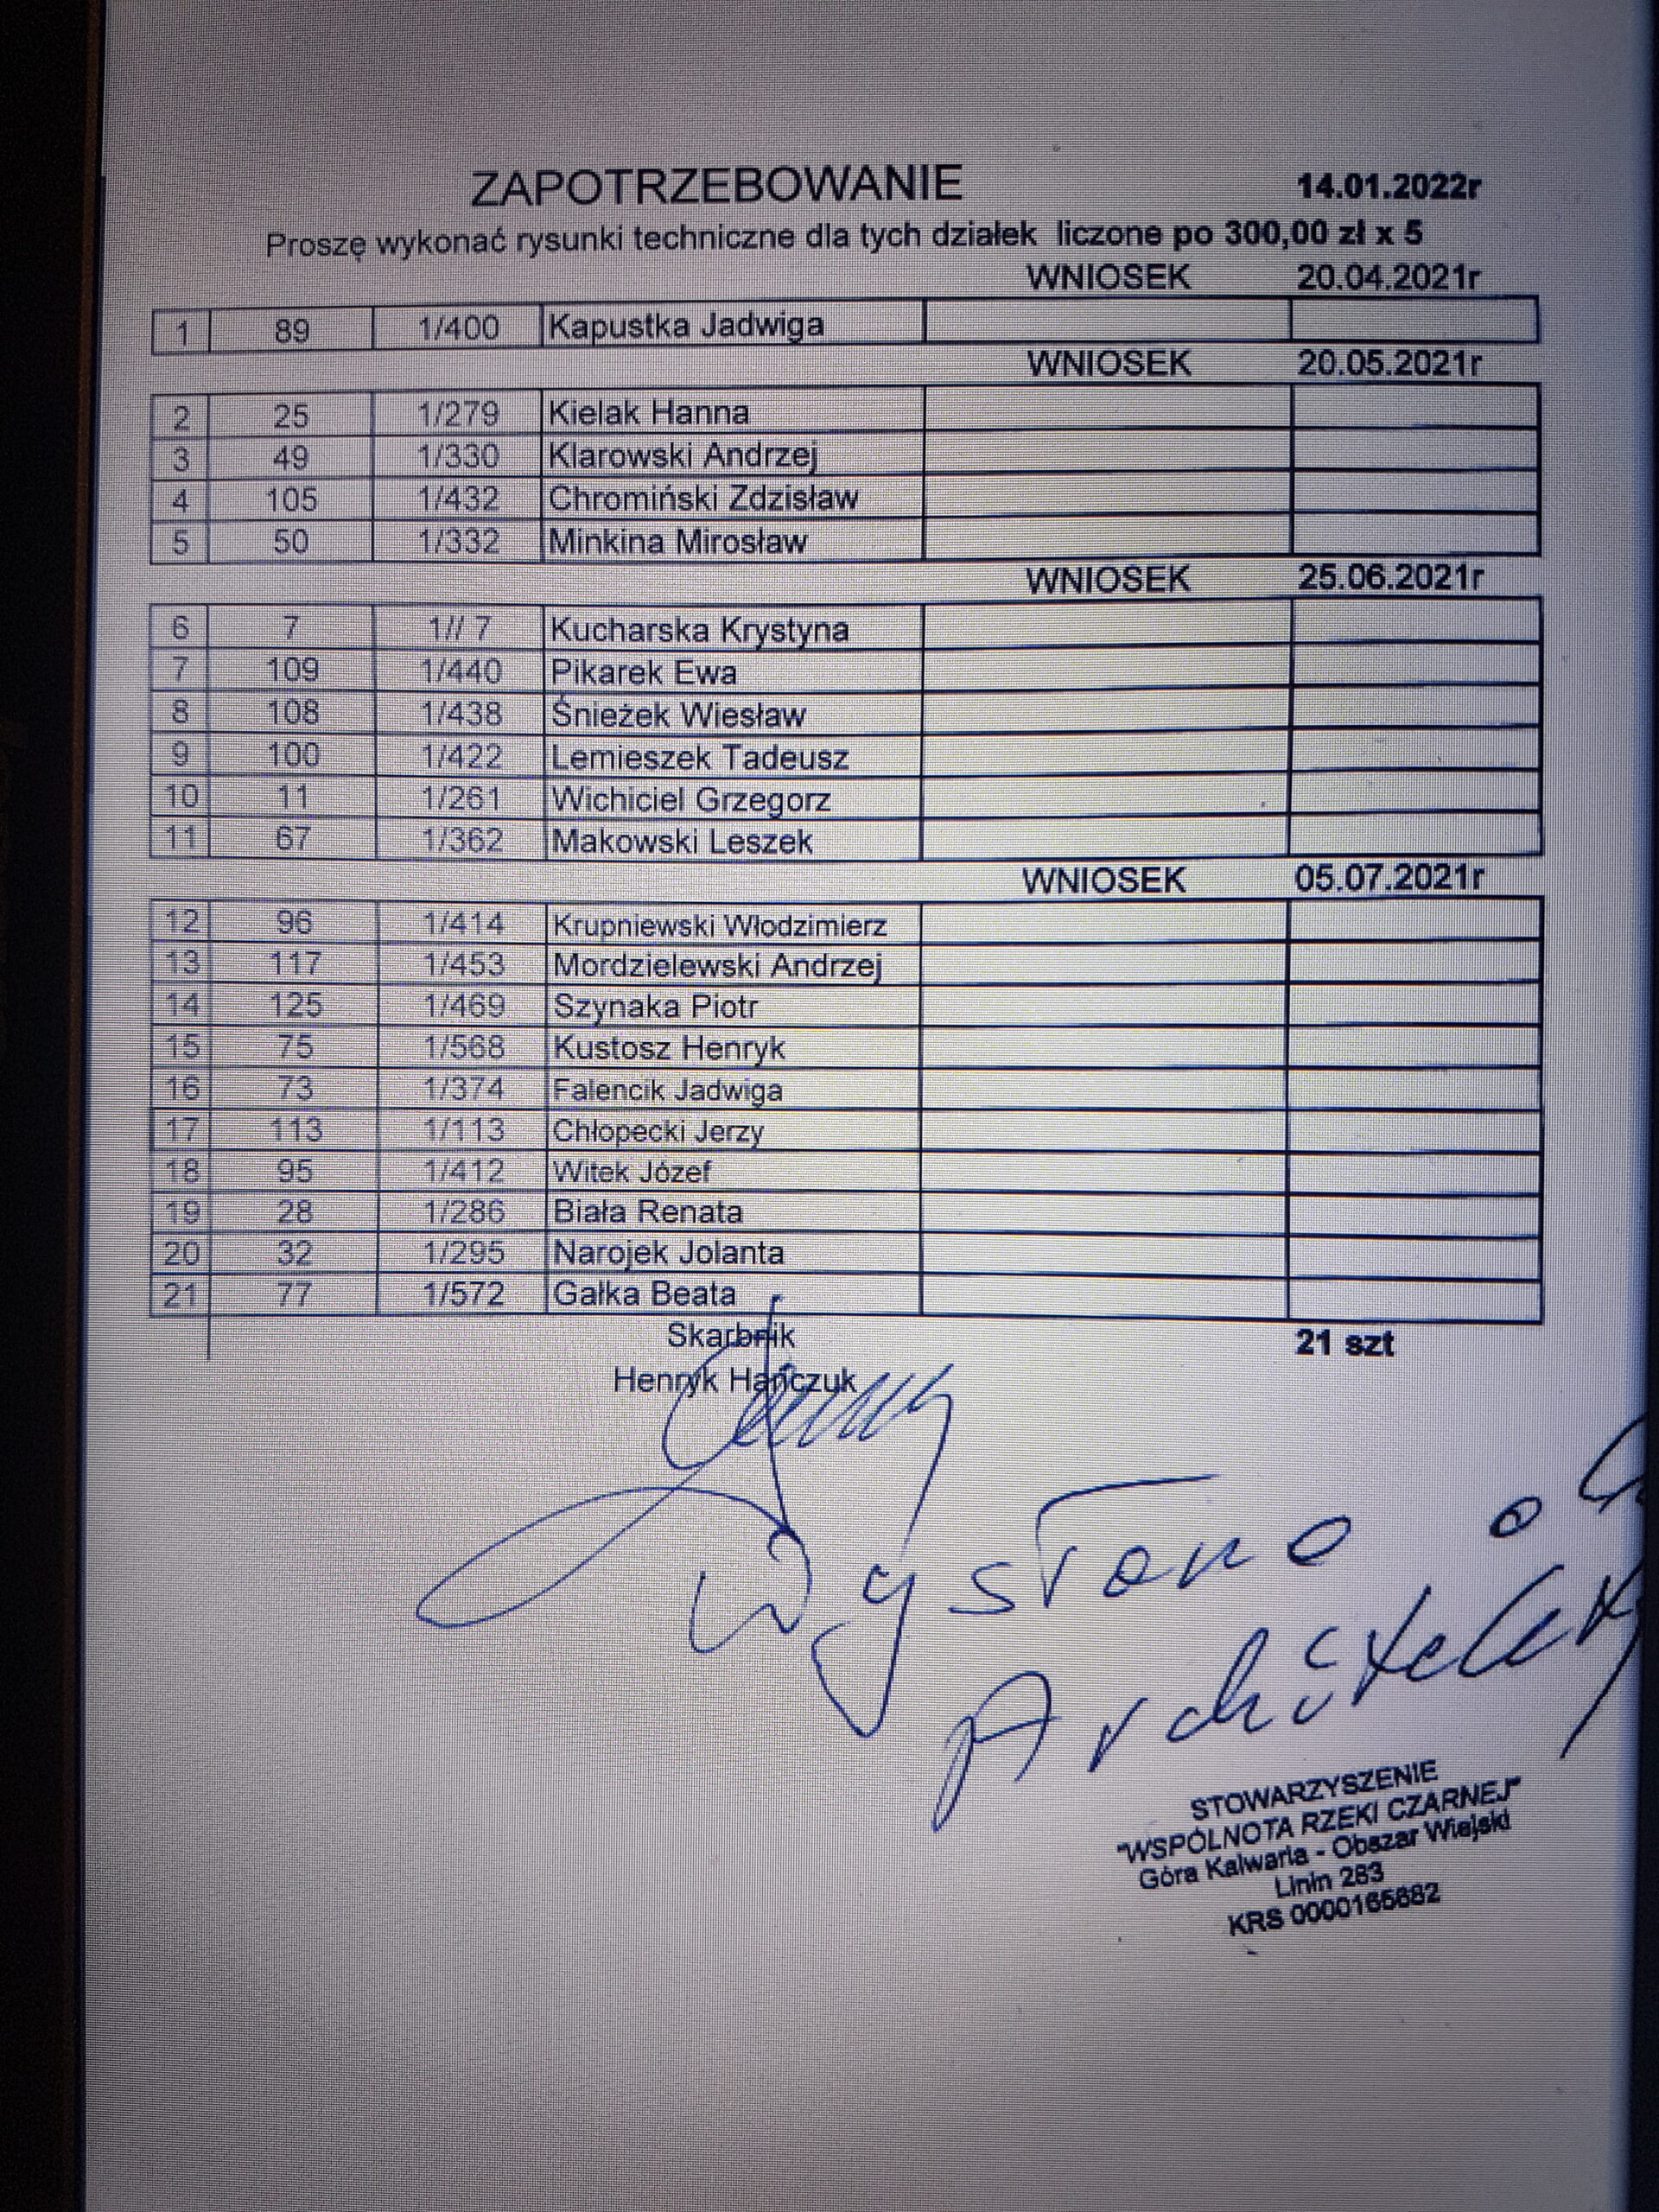 ZAPOTRZEBOWANIE 14.01.2022r
Proszę wykonać rysunki techniczne dla tych działek liczone po 300,00 zł x 5
WNIOSEK 20.04.2021r
1 89 1/400 Kapustka Jadwiga
WNIOSEK 20.05.2021r
2 25 1/279 Kielak Hanna
3 49 1/330 Klarowski Andrzej
4 105 1/432 Chromiński Zdzisław
5 50 1/332 Minkina Mirosław
WNIOSEK 25.06.2021r
6 7 1// 7 Kucharska Krystyna
7 109 1/440 Pikarek Ewa
8 108 1/438 Śnieżek Wiesław
9 100 1/422 Lemieszek Tadeusz
10 11 1/261 Wichiciel Grzegorz
11 67 1/362 Makowski Leszek
WNIOSEK 05.07.2021r
12 96 1/414 Krupniewski Włodzimierz
13 117 1/453 Mordzielewski Andrzej
14 125 1/469 Szynaka Piotr
15 75 1/568 Kustosz Henryk
16 73 1/374 Falencik Jadwiga
17 113 1/113 Chłopecki Jerzy
18 95 1/412 Witek Józef
19 28 1/286 Biała Renata
20 32 1/295 Narojek Jolanta
21 77 1/572 Gałka Beata
Skarbnik 21 szt
Henryk Hańczuk
STOWARZYSZENIE
"WSPÓLNOTA RZEKI CZARNEJ"
Góra Kalwaria - Obszar Wiejski
Linin 283
KRS 0000165882